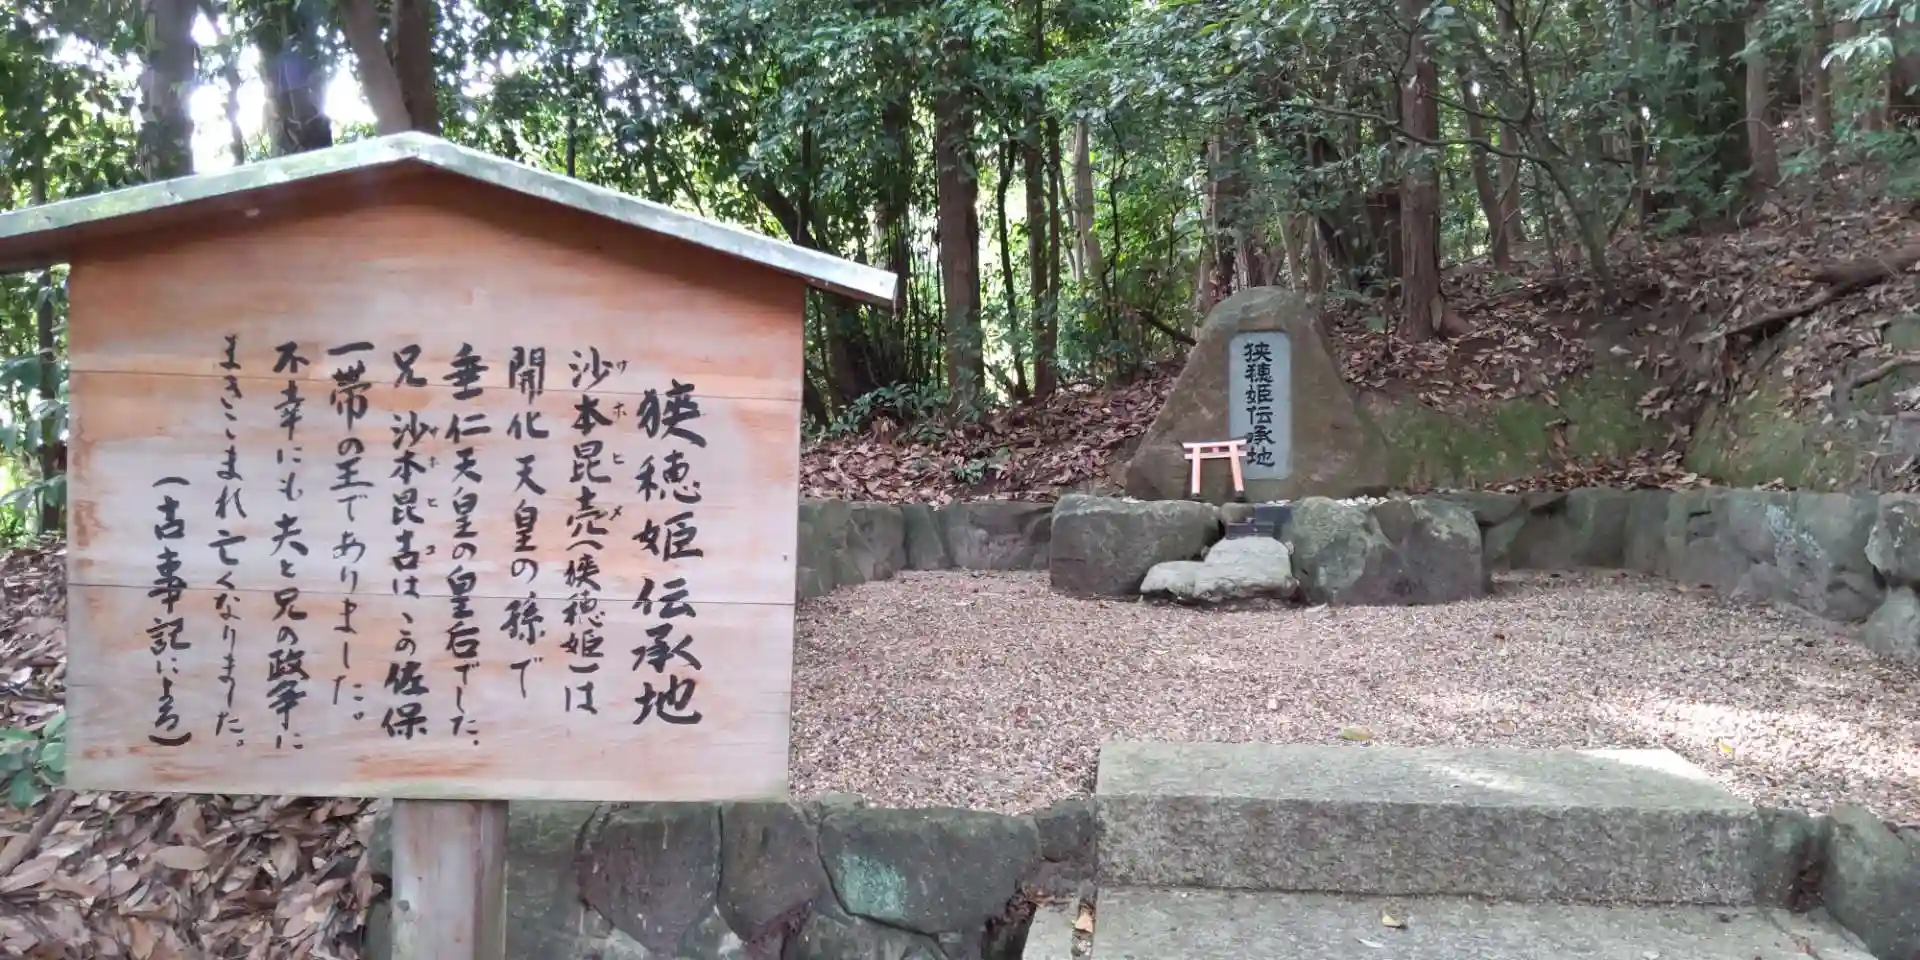 狹穂姫伝承地
沙本毘売(狹穂姫)は
サホヒメ
開化天皇の孫で
垂仁天皇の皇后でした。
兄 沙本毘古は、この佐保
サホヒコ
一帯の王でありました。
不幸にも夫と兄の政争に
まきこまれ亡くなりました。
(古事記による)
狭穂姫伝承地